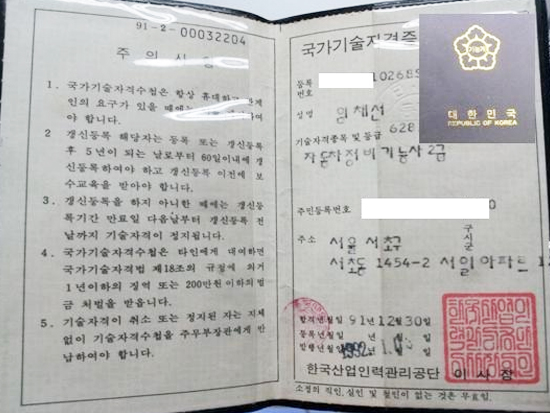 91-2-00032204
주 의 사
1. 국가기술자격수첩은 항상 휴대하고 관계
인의 요구가 있을 때에는 하여
야 합니다.
2. 갱신등록 해당자는 등록 또는 갱신등록
후 5년이 되는 날로부터 60일이내에 갱
신등록하여야 하고 갱신등록 이전에 보
수교육을 받아야 합니다.
3. 갱신등록을 하지 아니한 때에는 갱신등
록기간 만료일 다음날부터 갱신등록 전
날까지 기술자격이 정지됩니다.
4. 국가기술자격수첩은 타인에게 대여하면
국가기술자격법 제18조의 규정에 의거
1년이하의 징역 또는 200만원이하의 벌
금 처벌을 받습니다.
5. 기술자격이 취소 또는 정지된 자는 지체
없이 기술자격수첩을 주무부장관에게 반
납하여야 합니다.
국가기술자격증
대한민국
REPUBLIC OF KOREA
등록
번호
성명 임채선
기술자격종목 및 등급 628
자동차정비기능사2급
주민등록번호 0
주소 서울 서초구
구
시
군
서초동 1454-2 서일아파트
합격년월일 91년12월30일
등록년월일
발행년월일 1992
한국산업인력관리공단 이사장
소정의 직인, 실인 및 철인이 없는 것은 무효임.